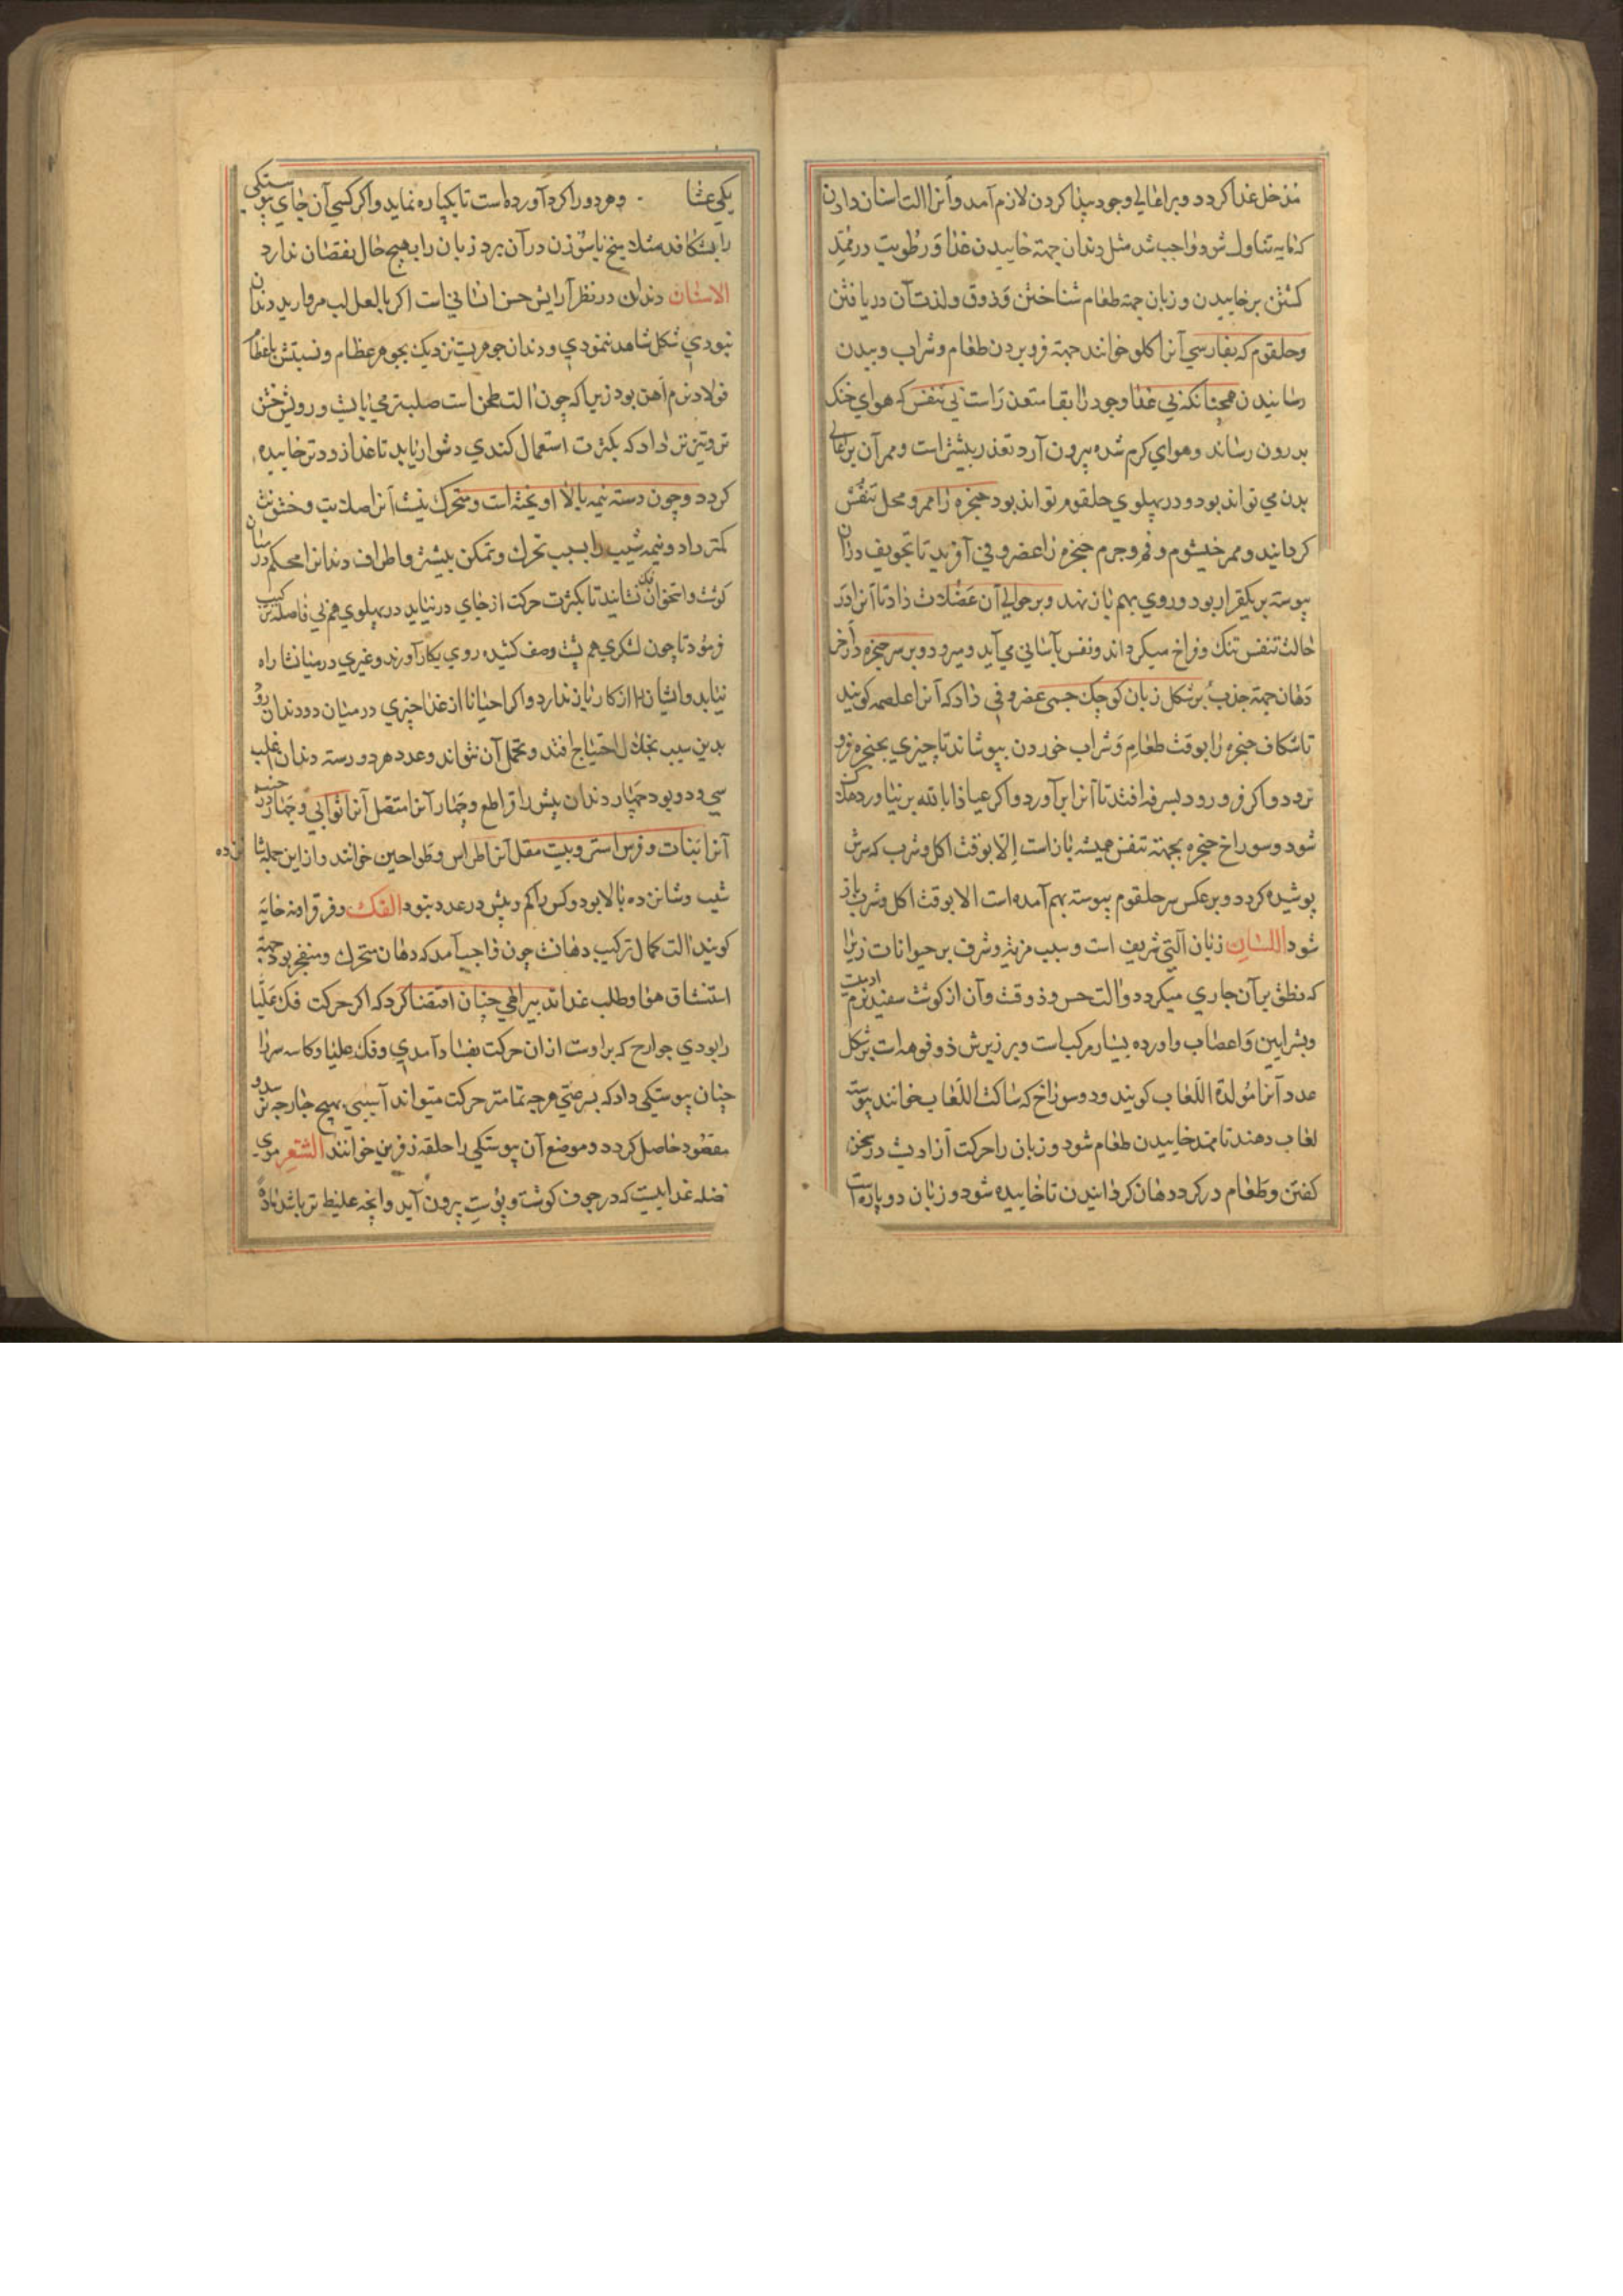 مدخل غذا کردد وبر اعالی وجود پیدا کردن لازم آمد وآنرا آلت اسنان دادن
که مایه تناول شود واجب شد مثل دندان جهة خاییدن غذا ورطوبت در ممد
کشتن بر خاییدن وزبان جهة طعام شناختن وذوق ولذت آن دریافتن
وحلقوم که بفارسی آنرا کلو خوانند جهة فرو بردن طعام وشراب وبیدن
رسانیدن همچنانکه بی غذا وجود را بقا متعذر است بی تنفس که هوای خنک
بدرون رساند وهوای کرم شده بیرون آرد تعذر بیشتر است وممر آن بر اعالی
بدن می تواند بود ودر پهلوی حلقوم تواند بود حنجره را ممر ومحل تنفس
کردانید وممر خیشوم وفم وجرم حنجره را غضروفی آفرید تا تجویف در آن
پیوسته بر یکقرار بود وروی بهم باز نهد وبر حوالی آن عضلات داد تا آنرا در
حالت تنفس تنک وفراخ میکرداند ونفس بآسانی می آید ومیرود وبر سر حنجره در آخر
دهان جهة جذب بر شکل زبان کوچک جسمی غضروفی داد که آنرا غلصمه کویند
تا شکاف حنجره را بوقت طعام وشراب خوردن بپوشاند تا چیزی بحنجره فرو
نرود واکر فرو رود بسرفه افتد تا آنرا بر آورد واکر عیاذا بالله بر نیاورد هلاک
شود وسوراخ حنجره بجهة تنفس همیشه باز است الا بوقت اکل وشرب که سرش
پوشیده کردد وبر عکس سر حلقوم پیوسته بهم آمده است الا بوقت اکل وشرب باز
شود اللسان زبان آلتی شریف است وسبب مزیة وشرف بر حیوانات زیرا
که نطق بر آن جاری میکردد وآلت حس وذوقت وآن از کوشت سفید نرم
وشرایین واعصاب واورده بسیار مرکب است وبر زیرش دو فوهه است بر شکل
غدد آنرا مولدة اللعاب کویند ودو سوراخ که ساکب اللعاب خوانند پیوسته
لعاب دهند تا ممد خاییدن طعام شود وزبان را حرکت آزادیست در سخن
کفتن وطعام در کرد دهان کردانیدن تا خاییده شود وزبان دو پاره است
یکی غشا وهر دو را کرد آورده است تا یکپاره نماید واکر کسی آن جای پیوستکی
را بشکافد مثلا بیخ یا سوزن در آن برد زبان را بهیچ حال نقصان ندارد
الاسنان دندان در نظر آرایش حسن انسانی است اکر با لعل لب مروارید دندان
نبودی شکل شاهد ننمودی ودندان جوهریست نزدیک بجوهر عظام ونسبتش با عظام
فولاد نرم آهن بود زیرا که چون آلت طحن است صلبتر می بایست ورویش خشن
تر وتیزتر داد که بکثرت استعمال کندی دشوار یابد تا غذا زودتر خاییده
کردد وچون دسته نیمه بالا آویخته است ومتحرک نیست آنرا صلابت وخشونت
کمتر داد ونیمه شیب را بسبب تحرک وتمکن بیشتر واطراف دندانرا محکم در میان
کوشت واستخوان نشانید تا بکثرت حرکت از جای در نیاید در پهلوی هم بی فاصله ترکیب
فرمود تا چون لشکری هم پشت وصف کشیده روی بکار آورند وغیری در میانشا راه
نیابد وایشان را از کار باز ندارد واکر احیانا از غذا چیزی در میان دو دندان رود
بدین سبب بخلال احتیاج افتد وتحمل آن نتواند وعدد هر دو رسته دندان اغلب
سی ودو بود چهار دندان پیش را قواطع وچهار آنرا متصل آنرا ثوابی وچهار در جنب
آنرا نبات وفرس استر وبیست مقل آنرا اطراس وطواحین خوانند واز این جمله شا
نزده
شیب وشانزده بالا بود وکس را کم وبیش در عدد بود الفک وفرقرا منه خایه
کویند آلت کمال ترکیب دهانست چون واجب آمد که دهان متحرک ومنفجر بود جهة
استنشاق هوا وطلب غذا تدبیر الهی چنان اقتضا کرد که اکر حرکت فک علیا
را بودی جوارح که بر اوست از آن حرکت بفساد آمدی وفک علیا وکاسه سر را
چنان پیوستکی داد که بسرعتی هر چه تمامتر حرکت میتواند آسیبی بهیچ جارحه نرسد و
مقصود حاصل کردد وموضع آن پیوستکی را حلقه زفرین خوانند الشعر موی
فضله غذاییست که در جوف کوشت وپوست بیرون آید وآنچه غلیظ تر باشد ماده